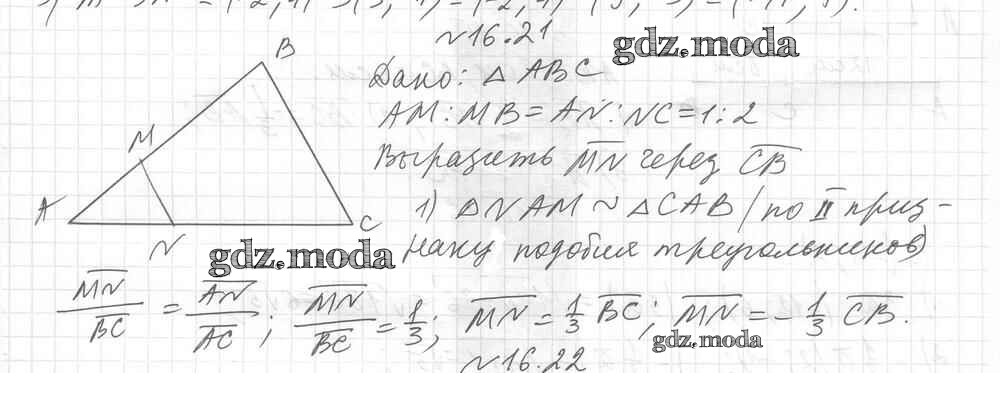 №16.21
gdz.moda
Дано: △ABC
AM:MB=AN:NC=1:2
Выразить \overline{MN} через \overline{CB}
B
M
A
N
C
1) △NAM ~ △CAB (по II приз-
наку подобия треугольников)
gdz.moda
\frac{\overline{MN}}{\overline{BC}} = \frac{\overline{AN}}{\overline{AC}}; \frac{\overline{MN}}{\overline{BC}} = \frac{1}{3}; \overline{MN} = \frac{1}{3} \overline{BC}; \overline{MN} = -\frac{1}{3} \overline{CB}.
gdz.moda
№16.22